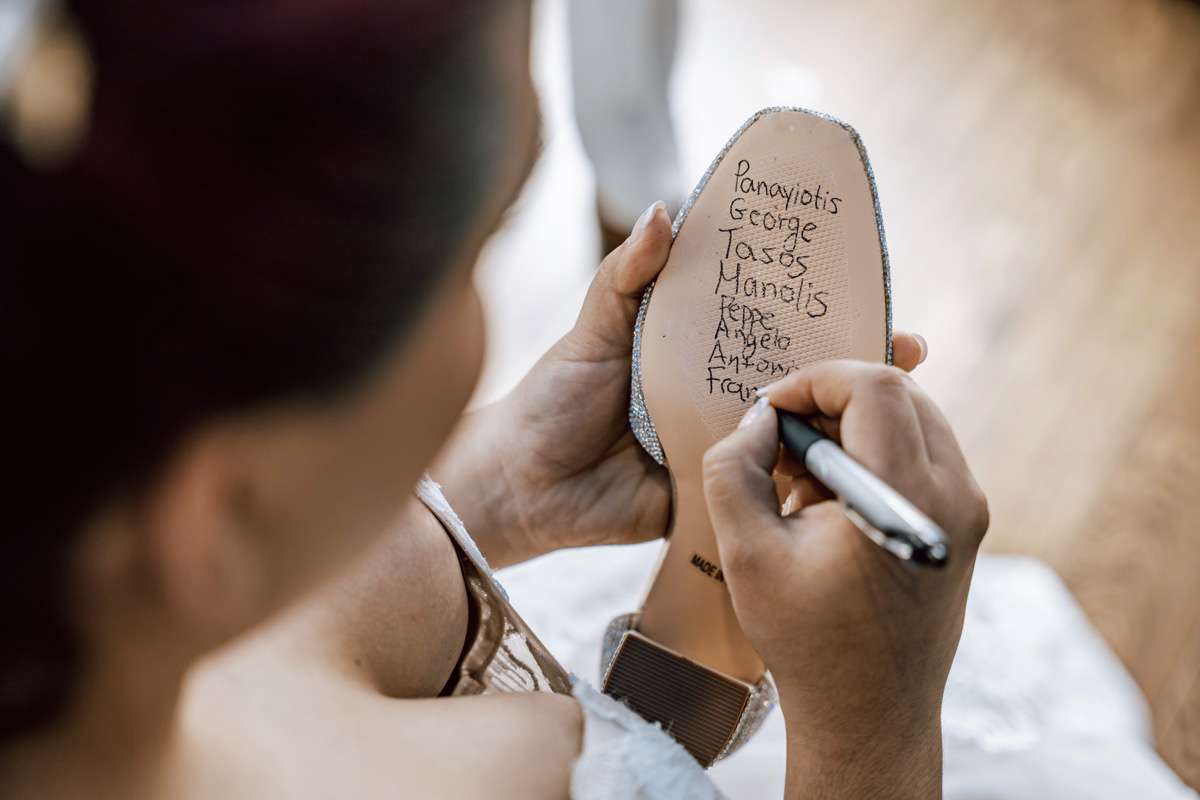 Panayiotis
George
Tasos
Manolis
Peppe
Angelo
Antoni
Fran
MADE IN